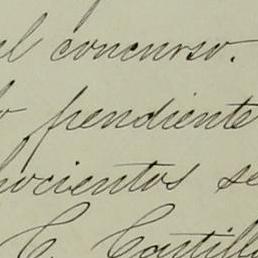 el concurso.
o pendiente
hocientos se
C. Castill